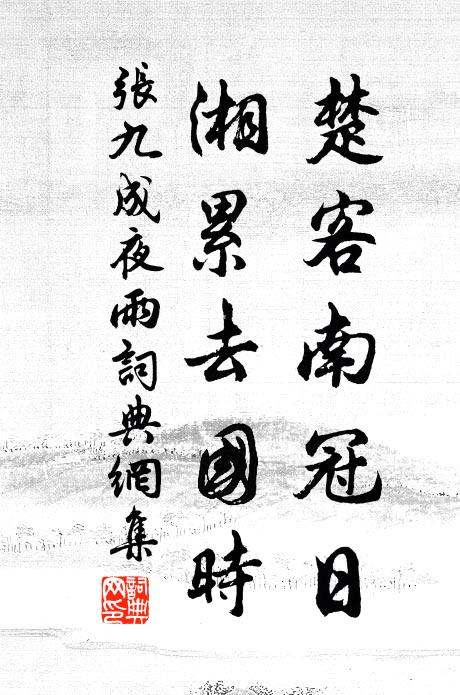 楚客南冠日
湘累去國時
張九成夜雨詞典網集
詞典網印